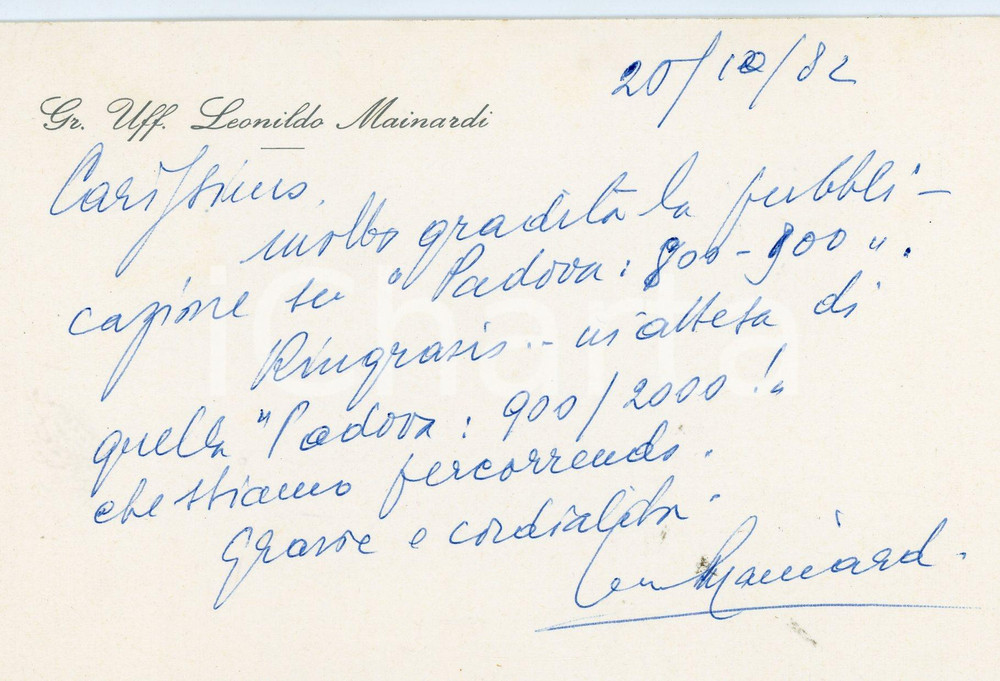 20/10/82
Gr. Uff. Leonildo Mainardi
Carissimo,
molto gradita la pubbli-
cazione su "Padova: 800-900".
Ringrazio.. in attesa di
quella "Padova: 900/2000!"
che stiamo percorrendo.
Grazie e cordialità
Mainardi
iCharta